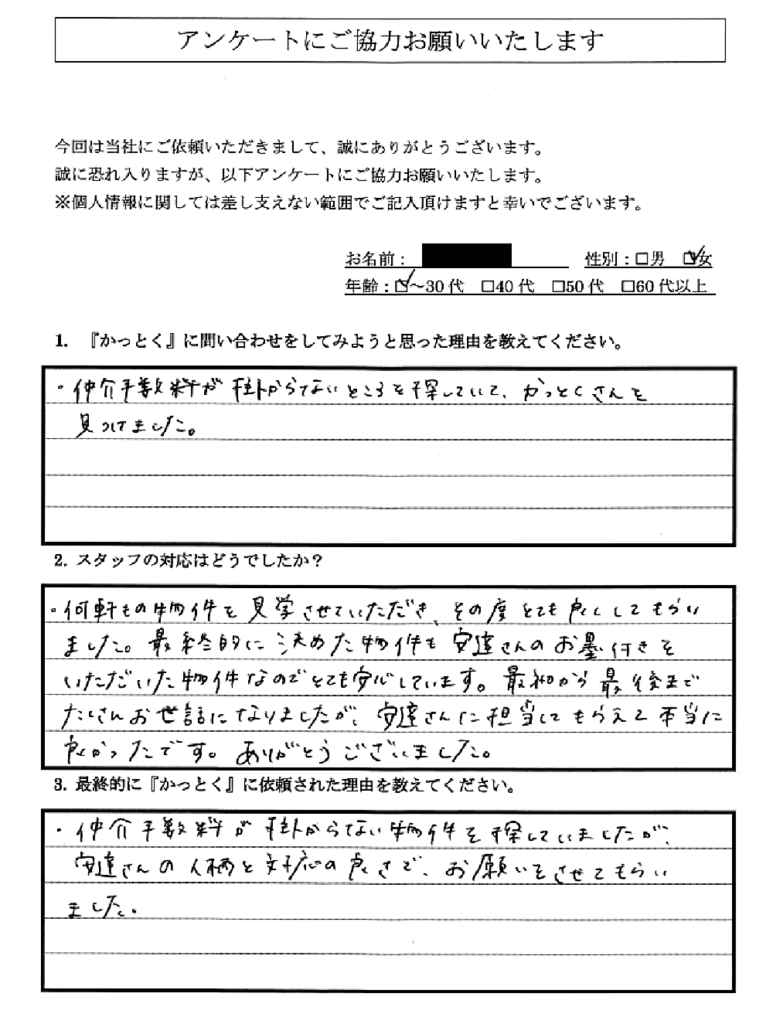 アンケートにご協力お願いいたします
今回は当社にご依頼いただきまして、誠にありがとうございます。
誠に恐れ入りますが、以下アンケートにご協力お願いいたします。
※個人情報に関しては差し支えない範囲でご記入頂けますと幸いでございます。
お名前： 性別：□男 ☑女
年齢：☑～30代 □40代 □50代 □60代以上
1. 『かっとく』に問い合わせをしてみようと思った理由を教えてください。
・仲介手数料が掛からないところを探していて、かっとくさんを
見つけました。
2. スタッフの対応はどうでしたか？
・何軒もの物件を見学させていただき、その度とても良くしてもらい
ました。最終的に決めた物件も安達さんのお墨付きを
いただいた物件なのでとても安心しています。最初から最後まで
たくさんお世話になりましたが、安達さんに担当してもらえて本当に
良かったです。ありがとうございました。
3. 最終的に『かっとく』に依頼された理由を教えてください。
・仲介手数料が掛からない物件を探していましたが、
安達さんの人柄と対応の良さで、お願いをさせてもらい
ました。